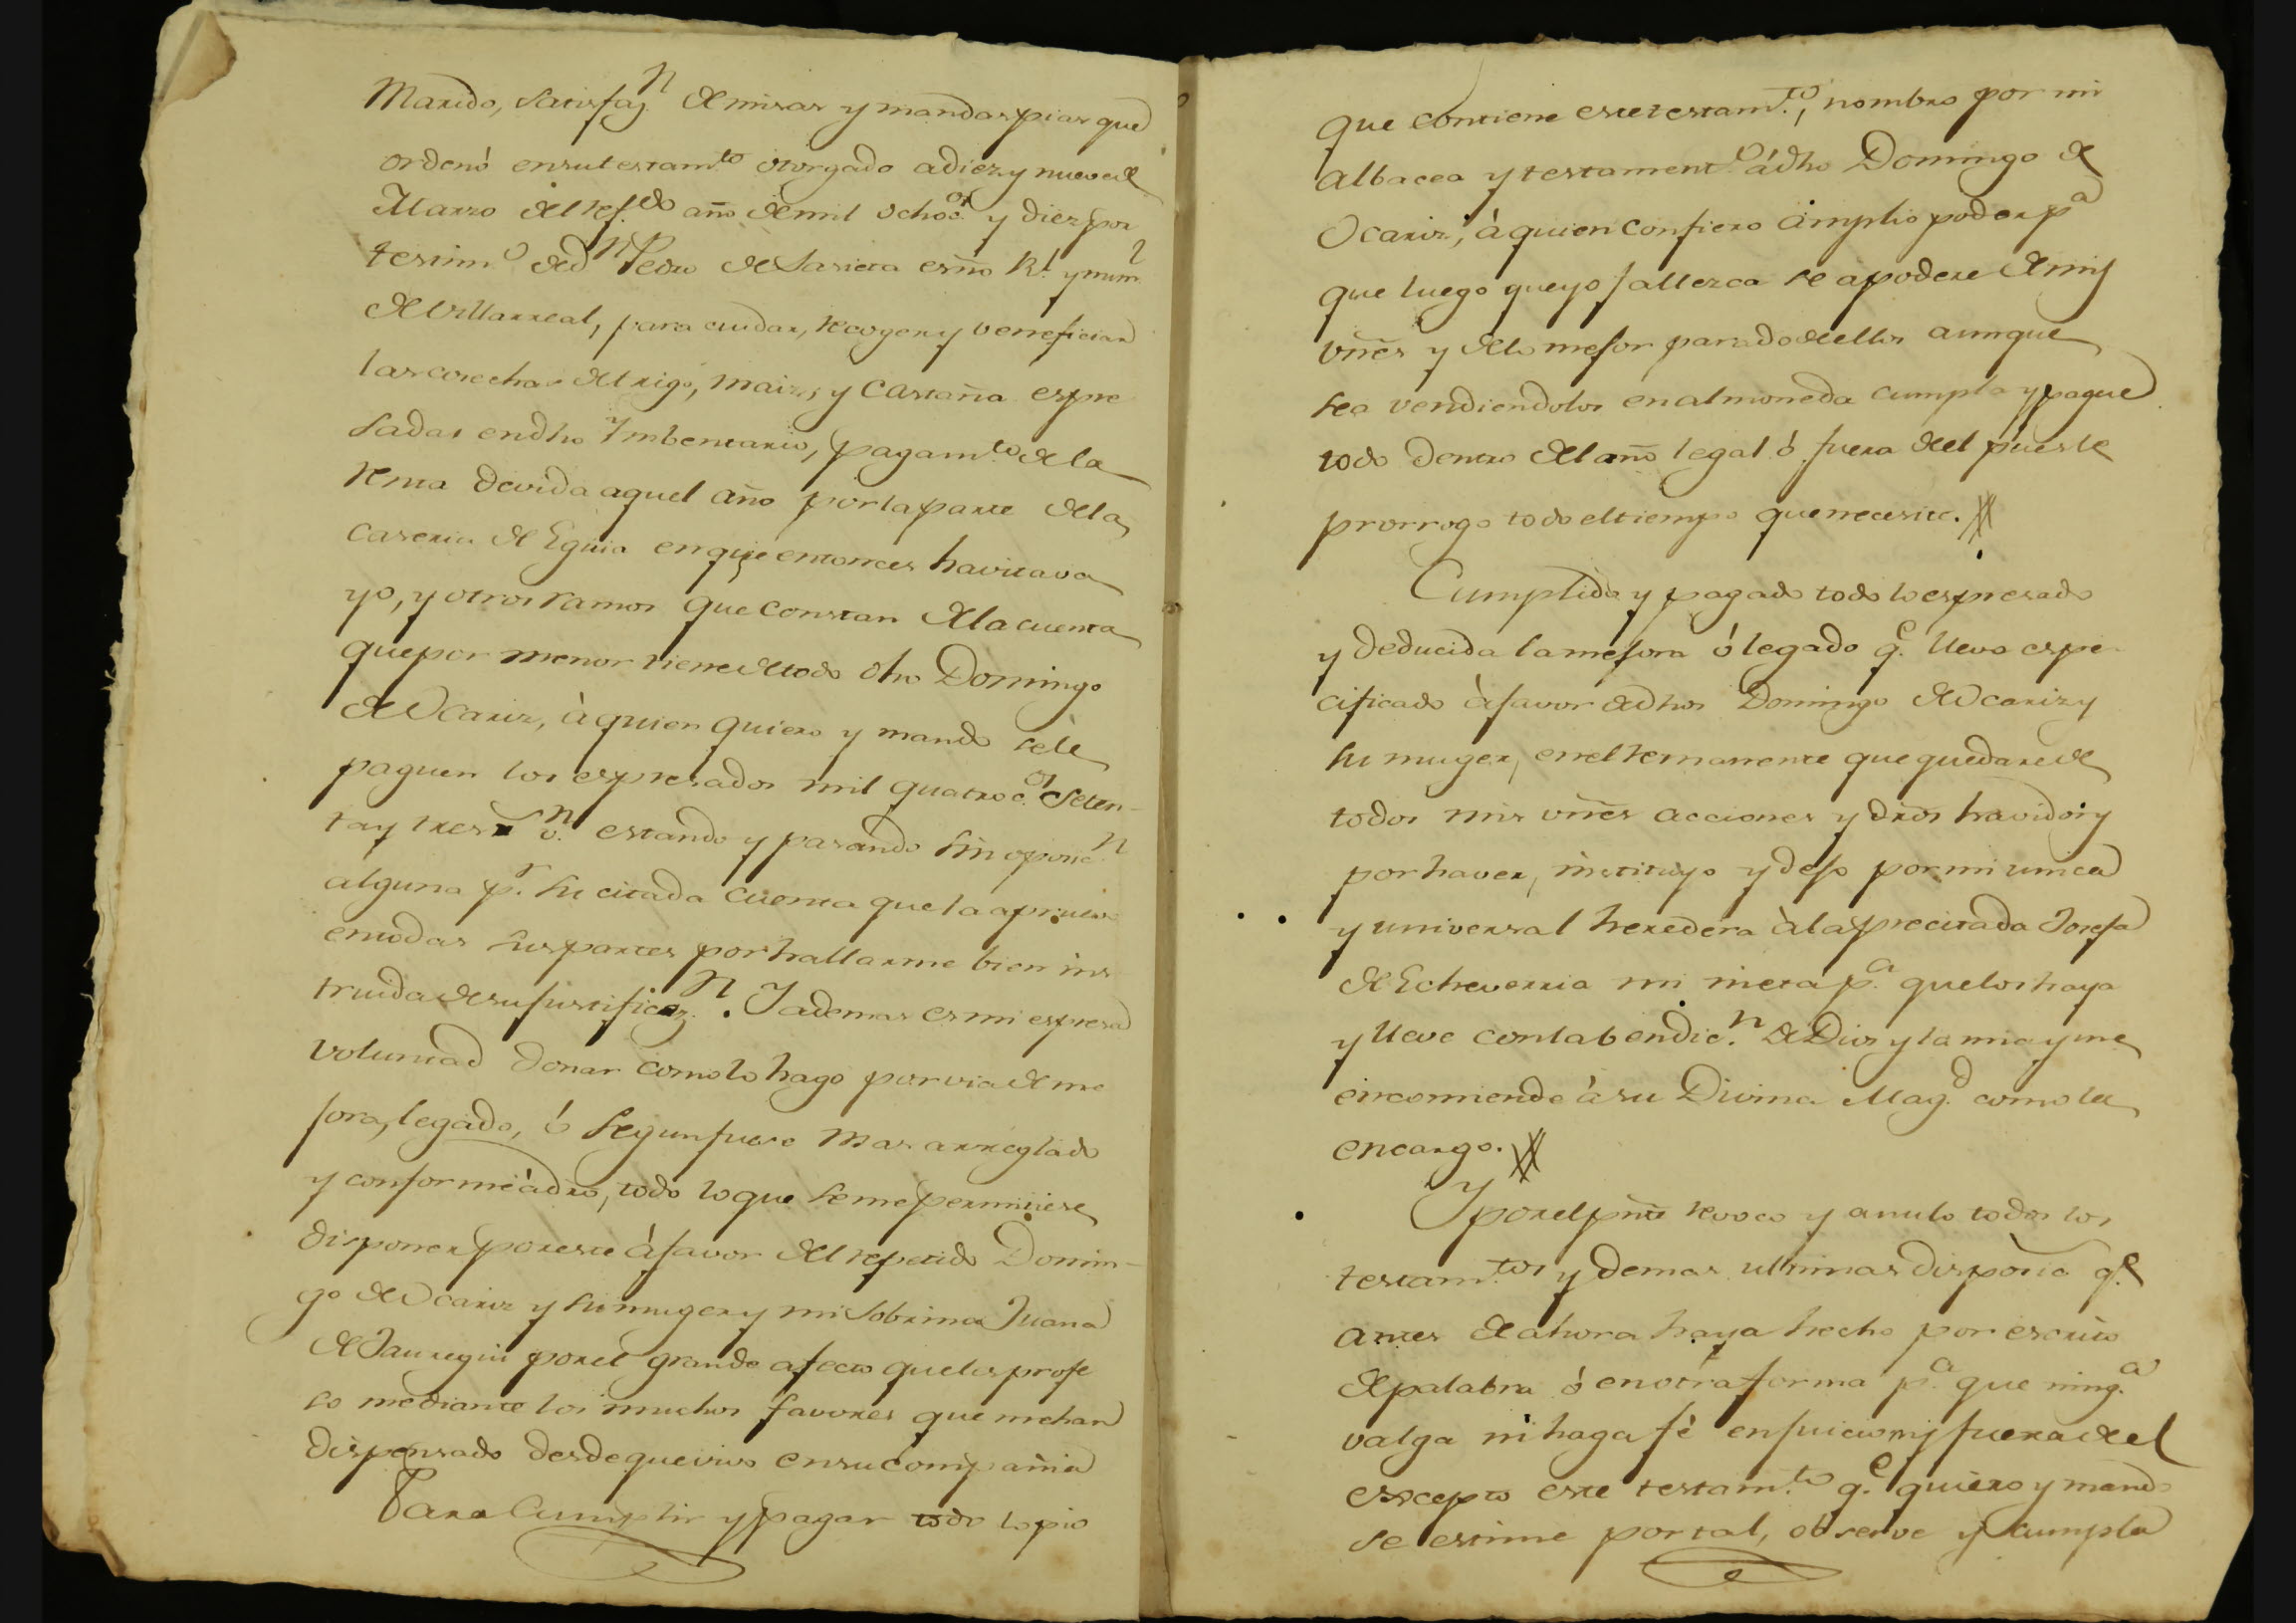 Marido, satisfaz.n de misas y mandas pias que
ordenó en su testam.to otorgado a diez y nueve de
Marzo del ref.do año de mil ochoc.os y diez por
testim.o de D.n Pedro de Lasieta esñno R.l y num.l
de Villarreal, para cuidar, recoger y beneficiar
las cosechas de trigo, maiz, y castaña espre
sadas en dho Imbentario, pagam.to de la
renta devida aquel año por la parte de la
caseria de Eguia en que entonces havitava
yo, y otros ramos que constan de la cuenta
que por menor tiene de todo dho Domingo
de Ocariz, à quien quiero y mando se le
paguen los espresados mil quatroc.os seten-
ta y tres r.s v.n estando y pasando sin oposic.n
alguna p.r su citada cuenta que la apruevo
en todas sus partes por hallarme bien ins
truida de su justificaz.n. Y ademas es mi espresa
voluntad donar como lo hago por via de me
jora, legado, ó segun fuere mas arreglado
y conforme à dro, todo lo que se me permitiese
disponer por este à favor del repetido Domin-
go de Ocariz y su muger y mi sobrina Juana
de Jauregui por el grande afecto que les profe
so mediante los muchos favores que me han
dispensado desde que vivo en su compañia
Para cumplir y pagar todo lo pio
que contiene este testam.to, nombro por mi
Albacea y testament.o á dho Domingo de
Ocariz, à quien confiero amplio poder p.a
que luego que yo fallezca se apodere de mis
vñes y de lo mejor parado de ellos aunque
sea vendiendolos en almoneda cumpla y pague
todo dentro del año legal ó fuera del pues le
prorrogo todo el tiempo que necesite.
Cumplido y pagado todo lo espresado
y deducida la mejora ó legado q.e llevo espe
cificado à favor de dhos Domingo de Ocariz y
su muger, en el remanente que quedare de
todos mis vñes acciones y dros havidos y
por haver, instituyo y dejo por mi unica
y universal heredera à la precitada Josefa
de Echeverria mi nieta p.a que los haya
y lleve con la bendic.n de Dios y la mia y me
encomiende à su Divina Mag.d como la
encargo.
Y por el pñte revoco y anulo todos los
testam.tos y demas ultimas disposic q.e
antes de ahora haya hecho por escrito
de palabra ó en otra forma p.a que ning.a
valga ni haga fè en juicio ni fuera de el
escepto este testam.to q.e quiero y mando
se estime por tal, observe y cumpla